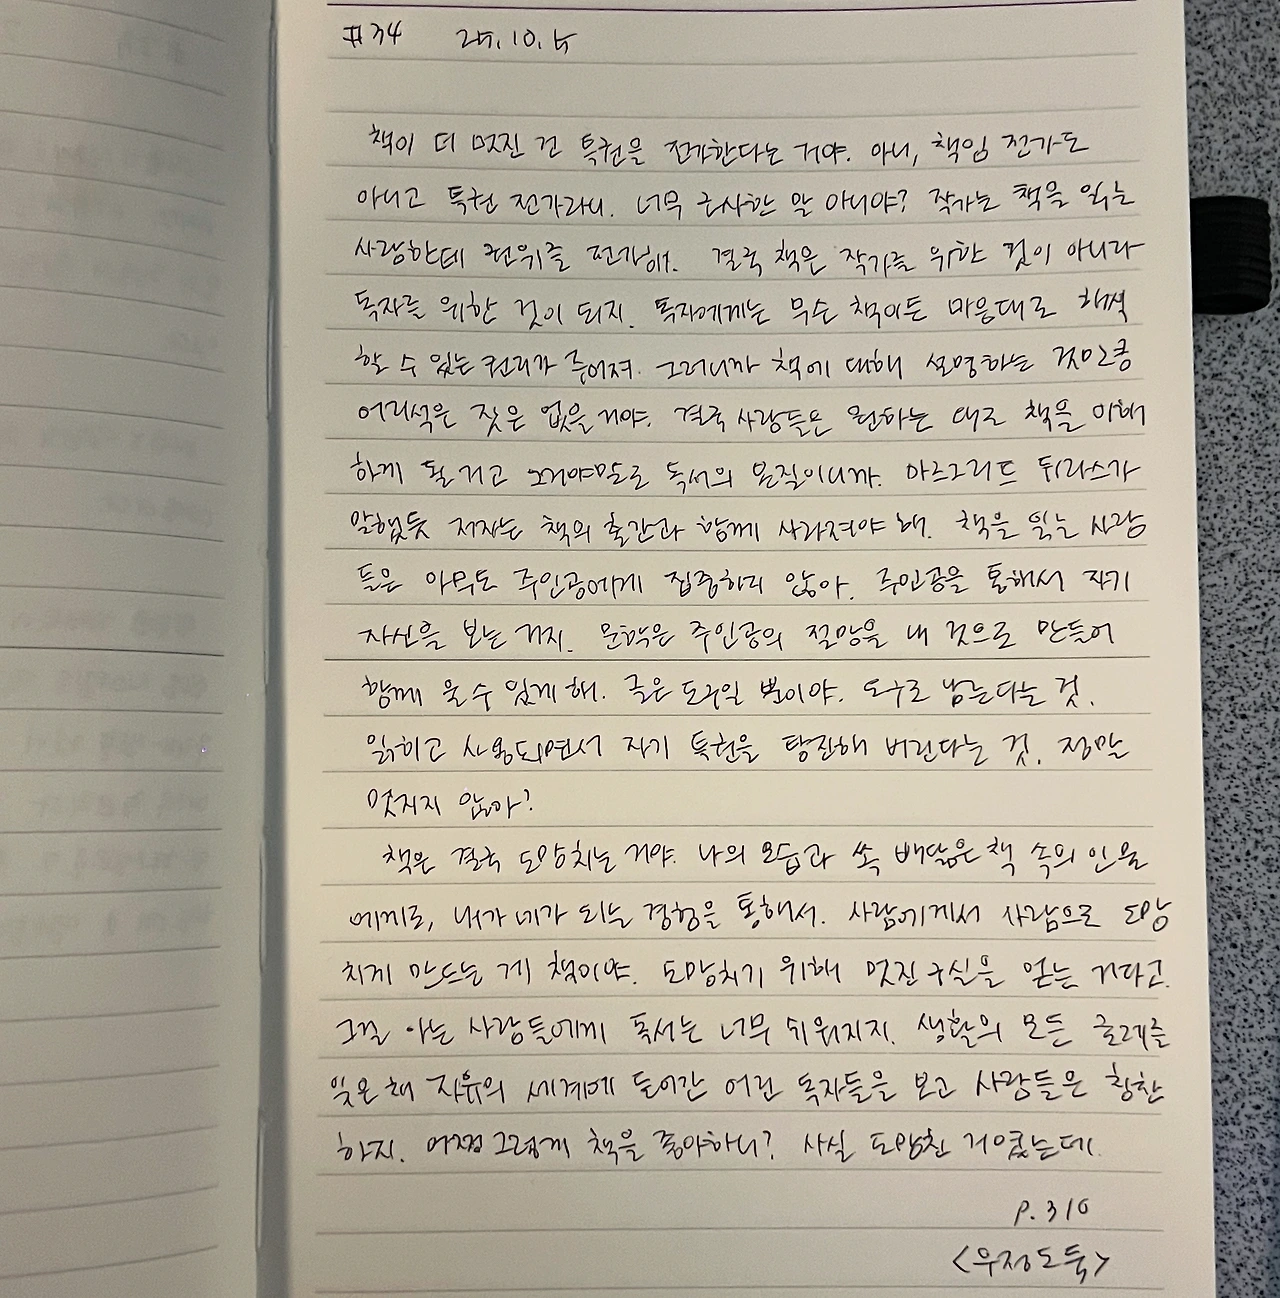 #34 25.10.5
책이 더 멋진 건 특권을 전가한다는 거야. 아니, 책임 전가도
아니고 특권 전가라니. 너무 근사한 말 아니야? 작가는 책을 읽는
사람한테 권위를 전가해. 결국 책은 작가를 위한 것이 아니라
독자를 위한 것이 되지. 독자에게는 무슨 책이든 마음대로 해석
할 수 있는 권리가 주어져. 그러니까 책에 대해 설명하는 것만큼
어리석은 짓은 없을 거야. 결국 사람들은 원하는 대로 책을 이해
하게 될 거고 그거야말로 독서의 본질이니까. 마르그리트 뒤라스가
말했듯 저자는 책의 출간과 함께 사라져야 해. 책을 읽는 사람
들은 아무도 주인공에게 집중하지 않아. 주인공을 통해서 자기
자신을 보는 거지. 문학은 주인공의 절망을 내 것으로 만들어
함께 울 수 있게 해. 글은 도구일 뿐이야. 도구로 남는다는 것.
읽히고 사용되면서 자기 특권을 탕진해 버린다는 것. 정말
멋지지 않아?
책은 결국 도망치는 거야. 나의 모습과 쏙 빼닮은 책 속의 인물
에게로, 내가 네가 되는 경험을 통해서. 사람에게서 사람으로 도망
치게 만드는 게 책이야. 도망치기 위해 멋진 구실을 얻는 거라고.
그걸 아는 사람들에게 독서는 너무 쉬워지지. 생활의 모든 굴레를
잊은 채 자유의 세계에 들어간 어린 독자들을 보고 사람들은 칭찬
하지. 어쩜 그렇게 책을 좋아하니? 사실 도망친 거였는데.
p.310
<우정도둑>